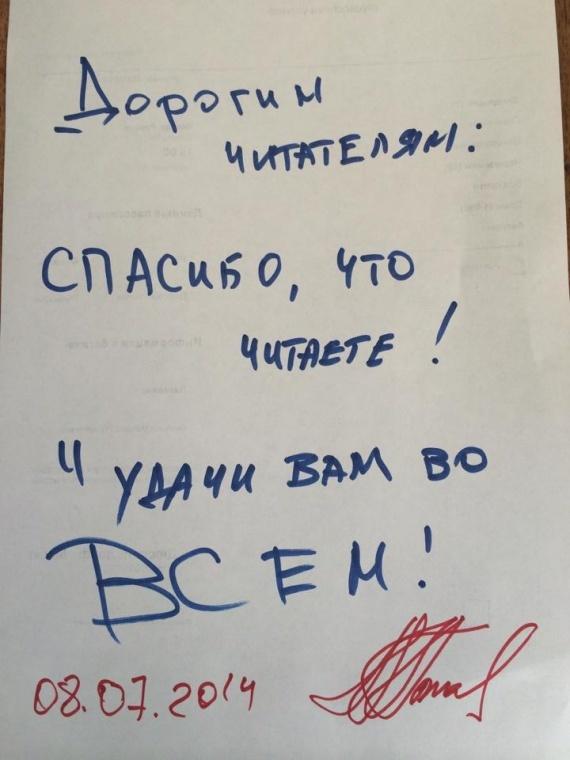 Дорогим
читателям:
СПАСИБО, ЧТО
ЧИТАЕТЕ!
И УДАЧИ ВАМ ВО
ВСЕМ!
08.07.2014